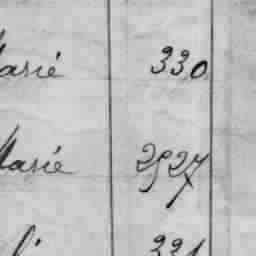 Marié 330
Marié 2927
331